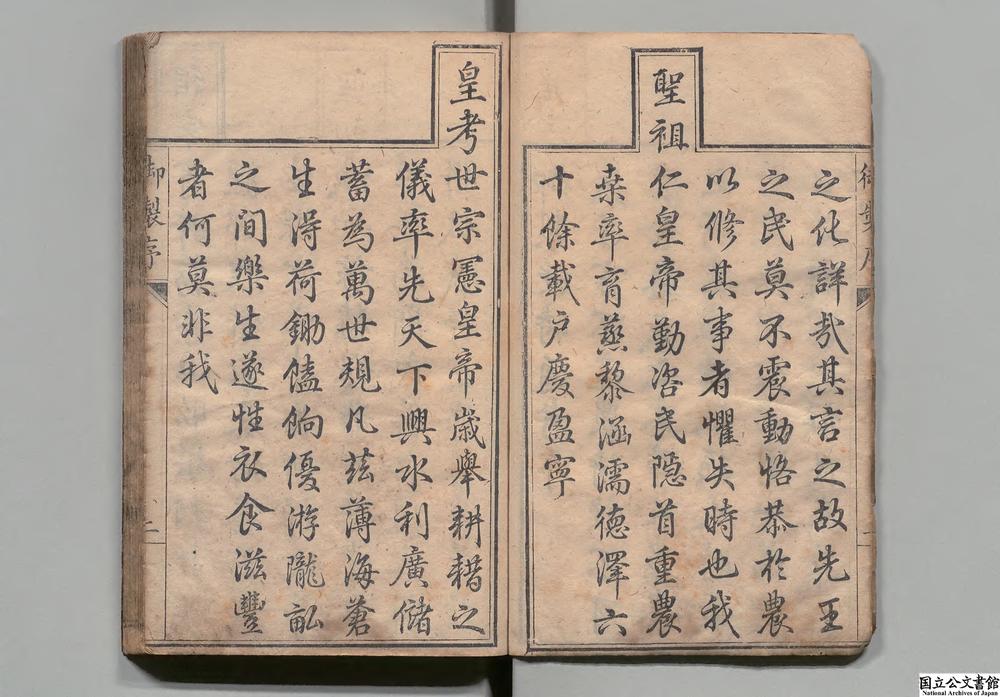 之化詳哉其言之故先王
之民莫不震動恪恭於農
以修其事者懼失時也我
聖祖仁皇帝勤咨民隱首重農
桒率育蒸黎涵濡德澤六
十餘載戶慶盈寧
皇考世宗憲皇帝歲舉耕耤之
儀率先天下興水利廣儲
蓄為萬世規凡茲薄海蒼
生得荷鋤饁餉優游隴畝
之間樂生遂性衣食滋豐
者何莫非我
御製序 二
国立公文書館
National Archives of Japan